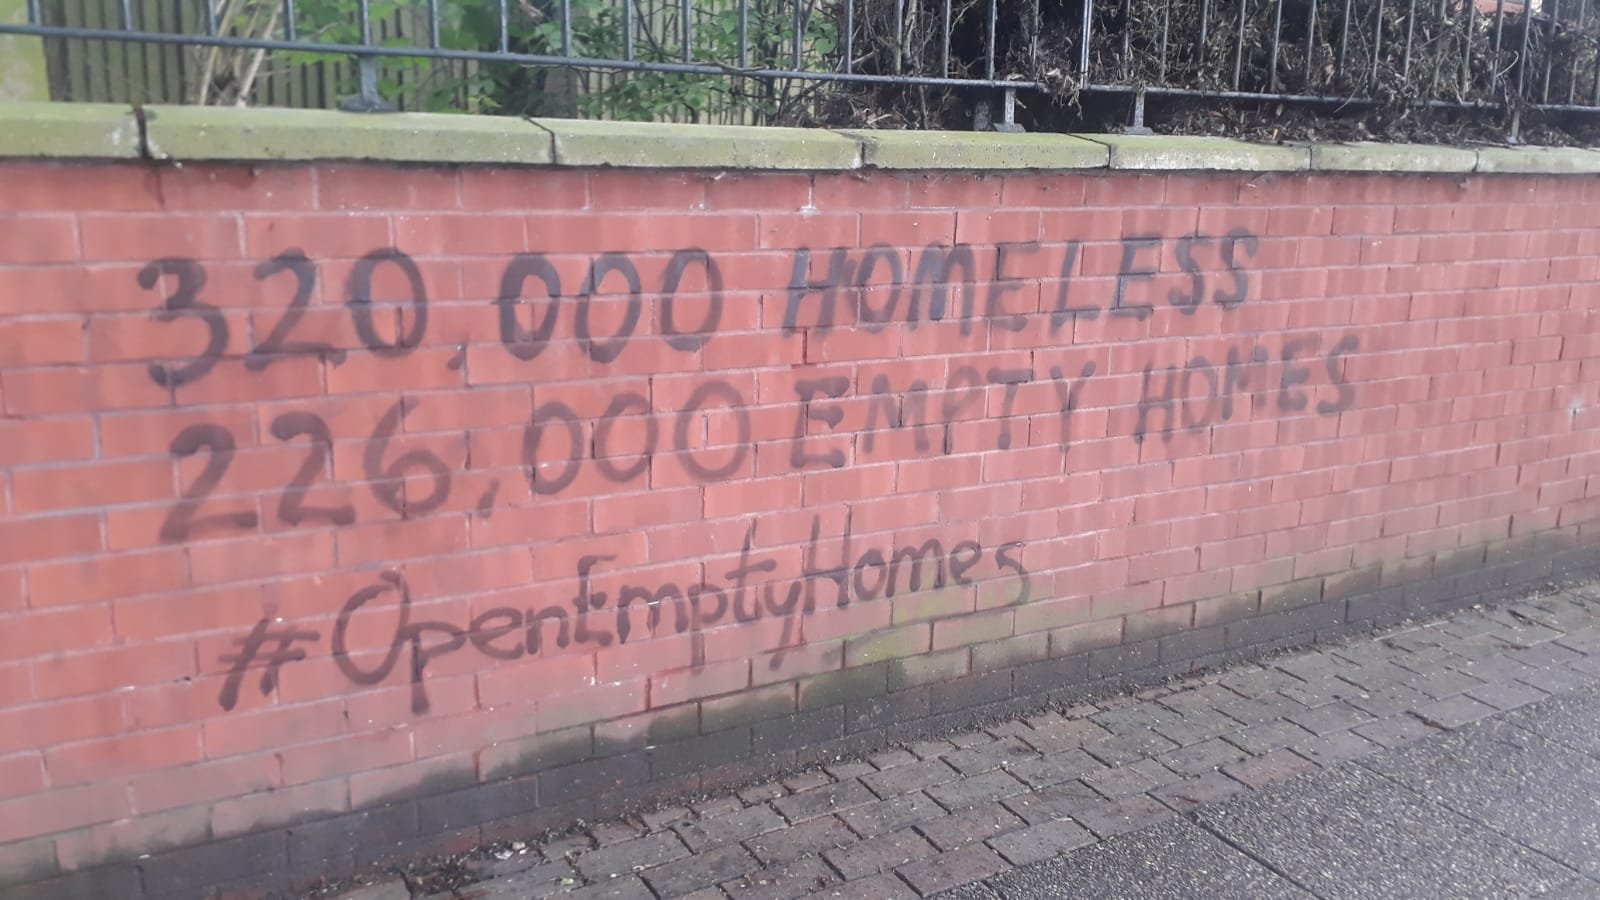 320,000 HOMELESS
226,000 EMPTY HOMES
#OpenEmptyHomes